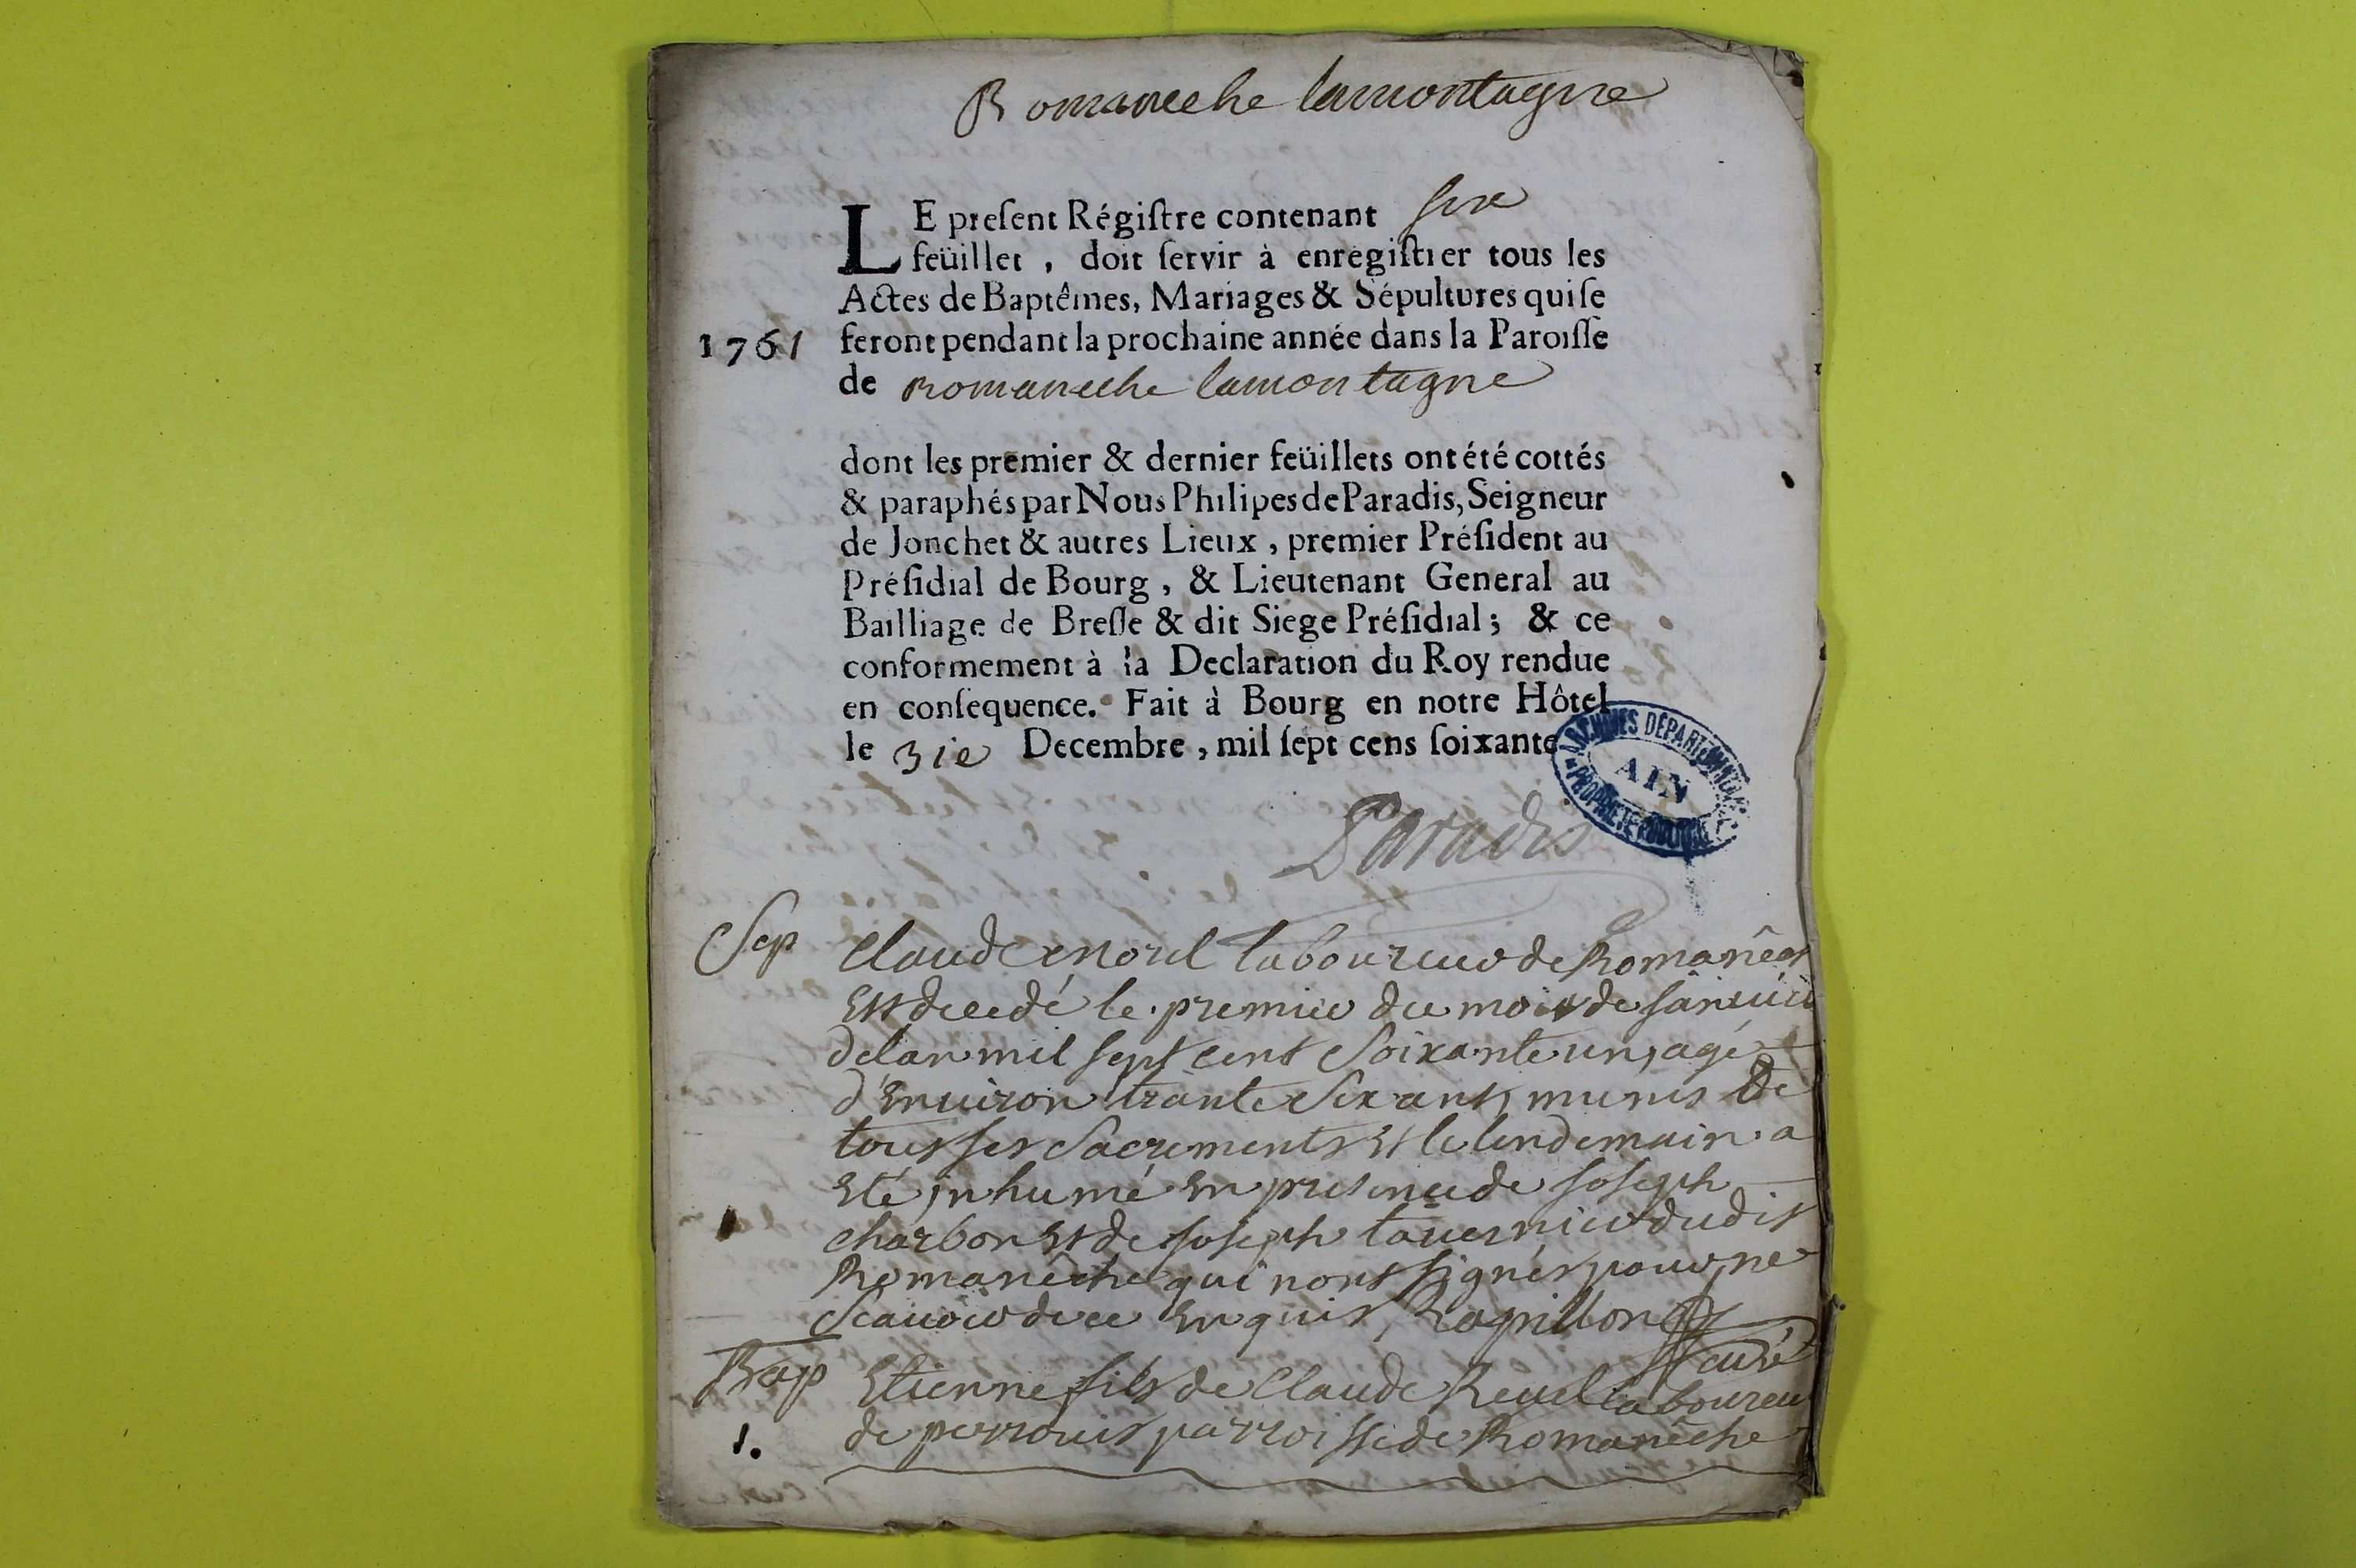 Romaneche lamontagne
LE preſent Régiſtre contenant six
feüillet , doit ſervir à enregiſtrer tous les
Actes de Baptêmes, Mariages & Sépultures qui ſe
1761 feront pendant la prochaine année dans la Paroiſſe
de Romaneche lamontagne
dont les premier & dernier feüillets ont été cottés
& paraphés par Nous Philipes de Paradis, Seigneur
de Jonchet & autres Lieux , premier Préſident au
Préſidial de Bourg , & Lieutenant General au
Bailliage de Breſſe & dit Siege Préſidial ; & ce
conformement à la Declaration du Roy rendue
en conſequence. Fait à Bourg en notre Hôtel
le 31e Decembre , mil ſept cens ſoixante
ARCHIVES DÉPARTEMENTALES
AIN
PROPRIÉTÉ PUBLIQUE
Paradis
Sep Claude morel laboureur de Romanêch
Est decedé le premier du mois de januier
de lan mil sept cent Soixante un, agé
d'Enuiron trante Six ans, munis De
tous ses Sacrements Et le lendemain a
Eté inhumé En presence de joseph
charbon Et de joseph tauernier dudit
Romanêche qui nont signés pour ne
Scauoir de ce Enquis, Rapillon
curé
Bap Etienne fils de Claude Reuel laboureur
1. de parroisse de Romanêche